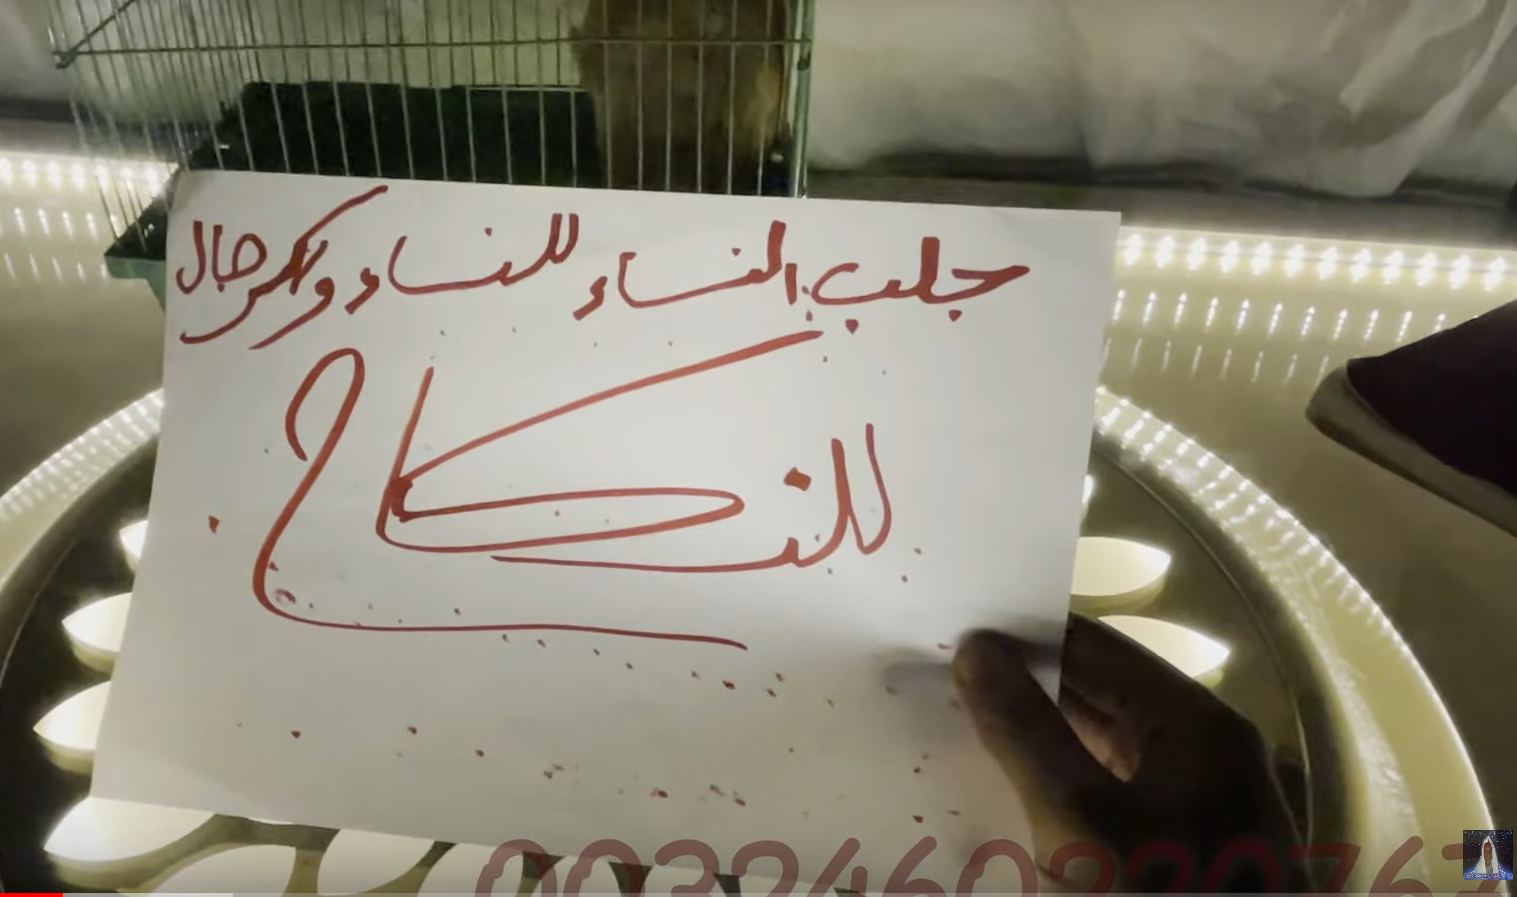 جلب النساء للنساء والرجال
للنكاح
0032460220767